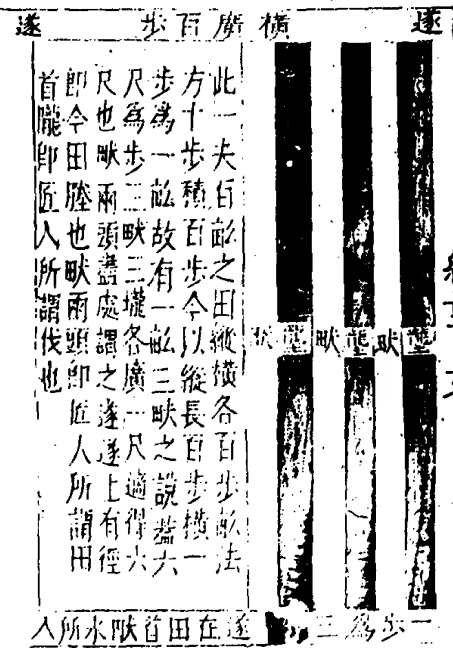 遂
橫廣百步
遂
壟
畎
壟
畎
壟
此一夫百畝之田縱橫各百步畝法
方十步積百步今以縱長百步橫一
步為一畝故有一畝三畎之說葢六
尺為步三畎三壠各廣一尺適得六
尺也畎兩頭盡處謂之遂遂上有徑
即今田塍也畎兩頭即匠人所謂田
首隴即匠人所謂伐也
一步為三
遂在田首畎水所入